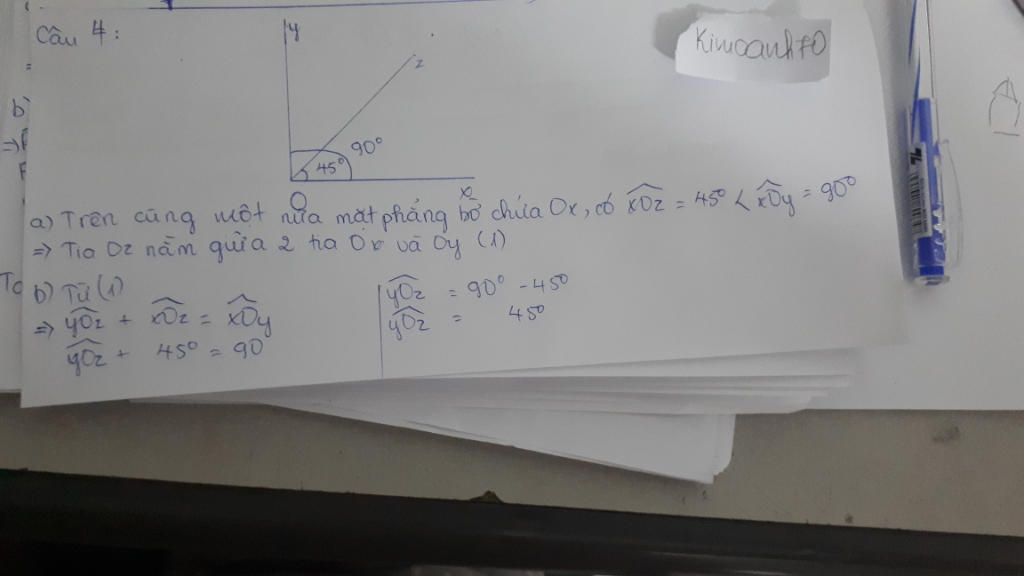 Câu 4:
y
z
90°
45°
O
x
Kimoanh70
a) Trên cùng một nửa mặt phẳng bờ chứa Ox, có xOz = 45° < xOy = 90°
=> Tia Oz nằm giữa 2 tia Ox và Oy (1)
b) Từ (1)
=> yOz + xOz = xOy
yOz + 45° = 90
yOz = 90° - 45°
yOz = 45°
b)